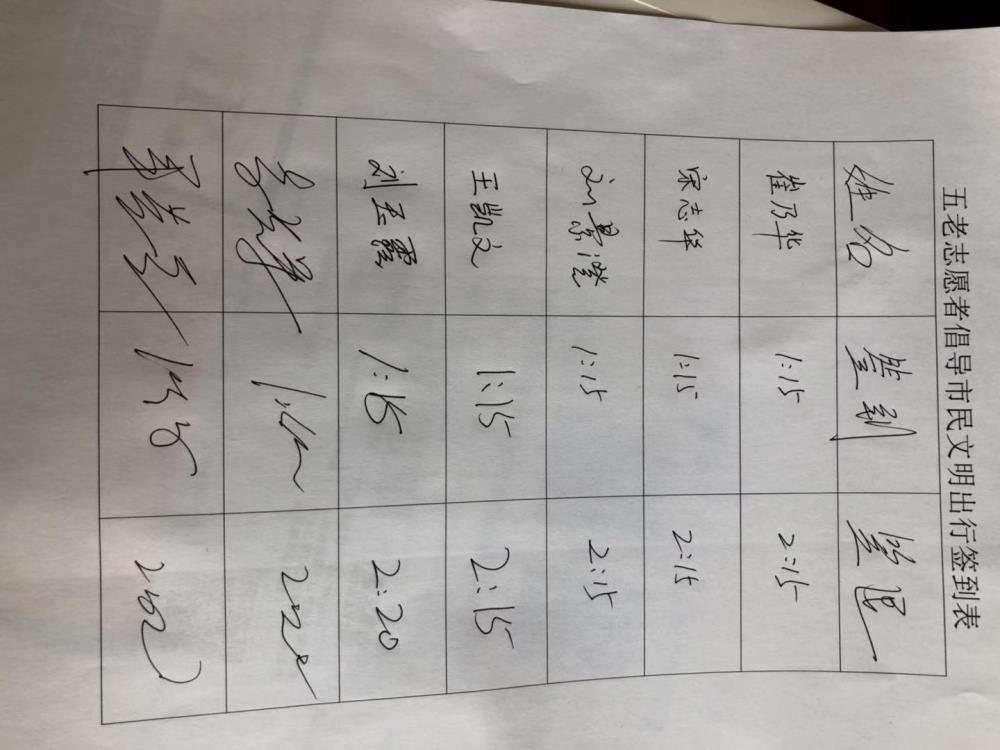 五老志愿者倡导市民文明出行签到表
姓名 签到 签退
崔乃华 1:15 2:15
宋志华 1:15 2:15
刘景澄 1:15 2:15
王凯文 1:15 2:15
刘玉霞 1:15 2:20